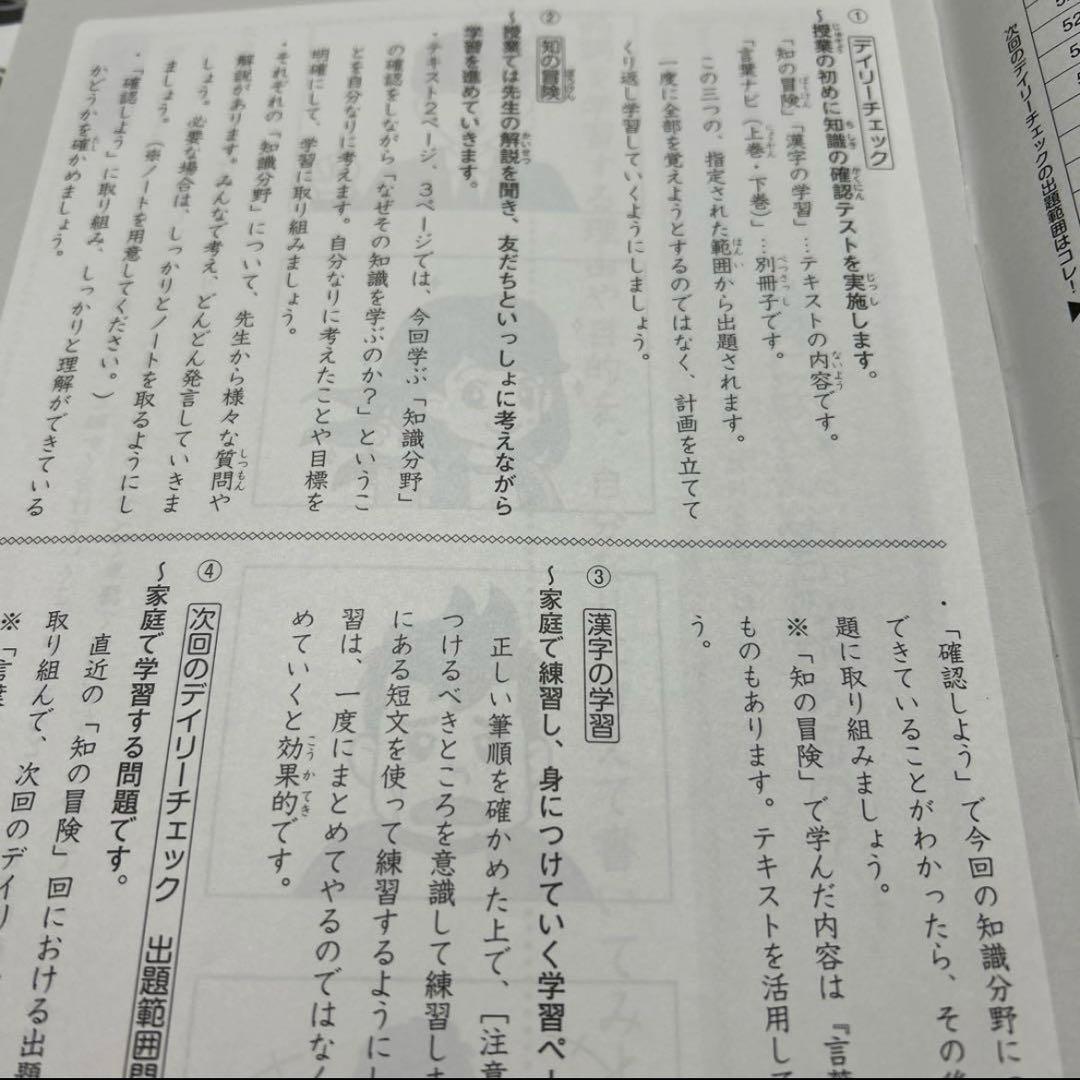 次回のデイリーチェックの出題範囲はコレ！▶
① デイリーチェック
～授業の初めに知識の確認テストを実施します。
「知の冒険」「漢字の学習」…テキストの内容です。
「言葉ナビ（上巻・下巻）」…別冊子です。
この三つの、指定された範囲から出題されます。
一度に全部を覚えようとするのではなく、計画を立てて
くり返し学習していくようにしましょう。
② 知の冒険
～授業では先生の解説を聞き、友だちといっしょに考えながら
学習を進めていきます。
・テキスト2ページ、3ページでは、今回学ぶ「知識分野」
の確認をしながら「なぜその知識を学ぶのか？」というこ
とを自分なりに考えます。自分なりに考えたことや目標を
明確にして、学習に取り組みましょう。
・それぞれの「知識分野」について、先生から様々な質問や
解説があります。みんなで考え、どんどん発言していきま
しょう。必要な場合は、しっかりとノートを取るようにし
ましょう。（※ノートを用意してください。）
・「確認しよう」に取り組み、しっかりと理解ができている
かどうかを確かめましょう。
・「確認しよう」で今回の知識分野に
できていることがわかったら、その
題に取り組みましょう。
※「知の冒険」で学んだ内容は『言葉
ものもあります。テキストを活用して
う。
③ 漢字の学習
～家庭で練習し、身につけていく学習ペー
正しい筆順を確かめた上で、［注意
つけるべきところを意識して練習しま
にある短文を使って練習するようにし
習は、一度にまとめてやるのではなく
めていくと効果的です。
④ 次回のデイリーチェック 出題範囲問
～家庭で学習する問題です。
直近の「知の冒険」回における出題
取り組んで、次回のデイリ
※「言葉